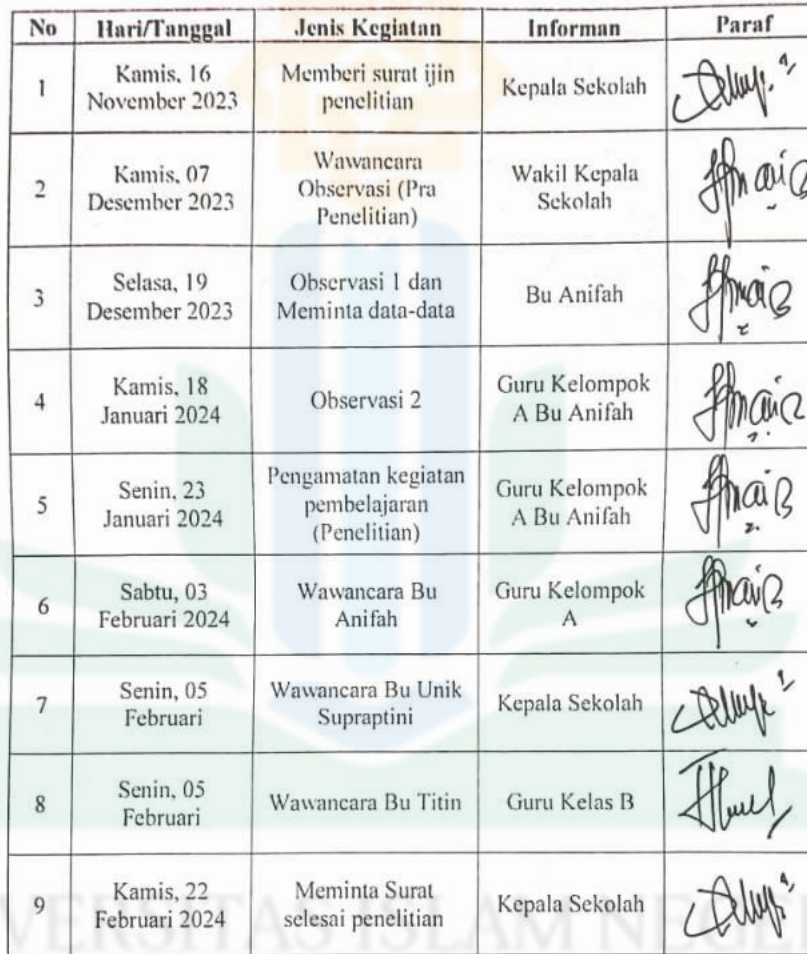 No Hari/Tanggal Jenis Kegiatan Informan Paraf
1 Kamis, 16 November 2023 Memberi surat ijin penelitian Kepala Sekolah
2 Kamis, 07 Desember 2023 Wawancara Observasi (Pra Penelitian) Wakil Kepala Sekolah
3 Selasa, 19 Desember 2023 Observasi 1 dan Meminta data-data Bu Anifah
4 Kamis, 18 Januari 2024 Observasi 2 Guru Kelompok A Bu Anifah
5 Senin, 23 Januari 2024 Pengamatan kegiatan pembelajaran (Penelitian) Guru Kelompok A Bu Anifah
6 Sabtu, 03 Februari 2024 Wawancara Bu Anifah Guru Kelompok A
7 Senin, 05 Februari Wawancara Bu Unik Supraptini Kepala Sekolah
8 Senin, 05 Februari Wawancara Bu Titin Guru Kelas B
9 Kamis, 22 Februari 2024 Meminta Surat selesai penelitian Kepala Sekolah
VERSITAS ISLAM NEGER